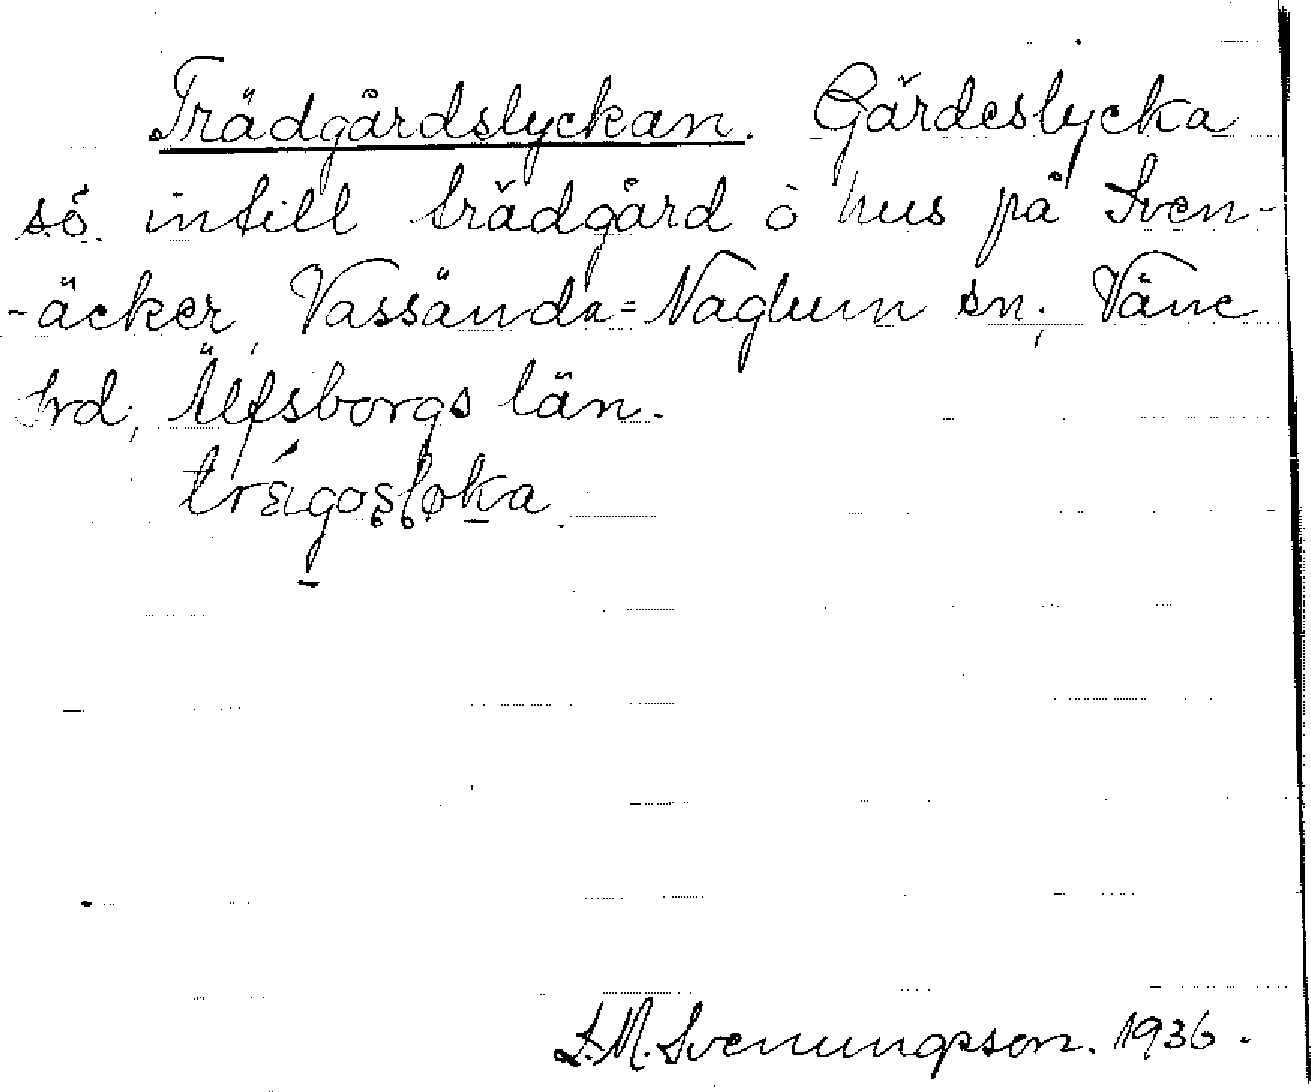 Trädgårdslyckan. Gärdeslycka
sö. intill trädgård ò hus på Sven-
-äcker, Vassända=Naglum sn; Väne
hrd, Älfsborgs län.
trä́gosloka
S.M. Svenungsson. 1936.